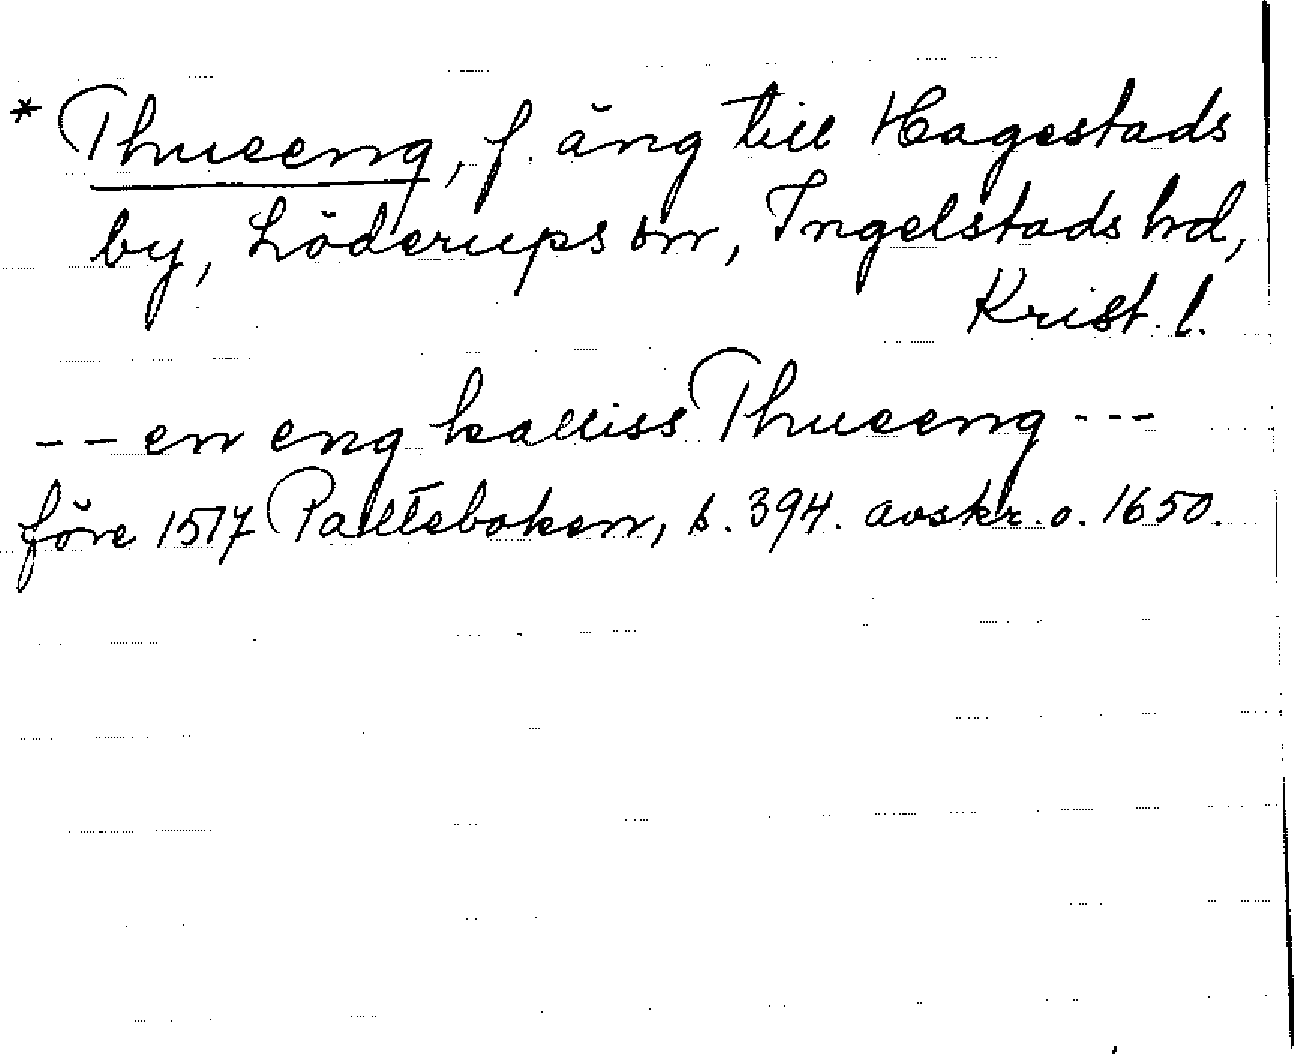 * Thueeng, f. äng till Hagestads
by, Löderups sn, Ingelstads hd,
Krist. l.
-- en eng kalliss Thueeng ---
före 1517 Palteboken, s. 394. avskr. o. 1650.